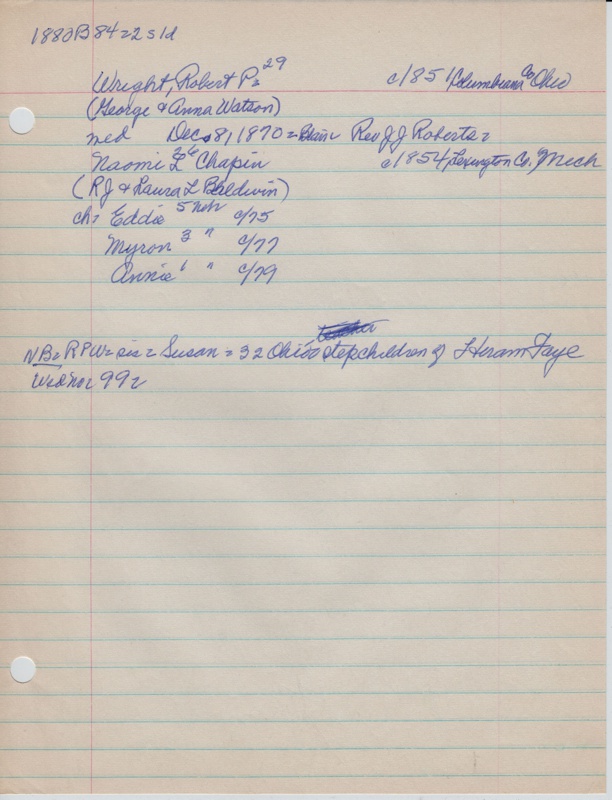 1880B 84=2 sld
Wright, Robert P= 29 c/1851 Columbiana Co Ohio
(George & Anna Watson)
med Dec 8, 1870 = Blain Rev J J Roberts=
Naomi L 26 Chapin c/1854 Lexington Co. Mich
(R J & Laura L Baldwin)
ch= Eddie 5 Neb c/75
Myron 3 " c/77
Annie 1 " c/79
NB= RPW= sis = Susan = 32 Ohio= stepchildren of Hiram Faye
99=